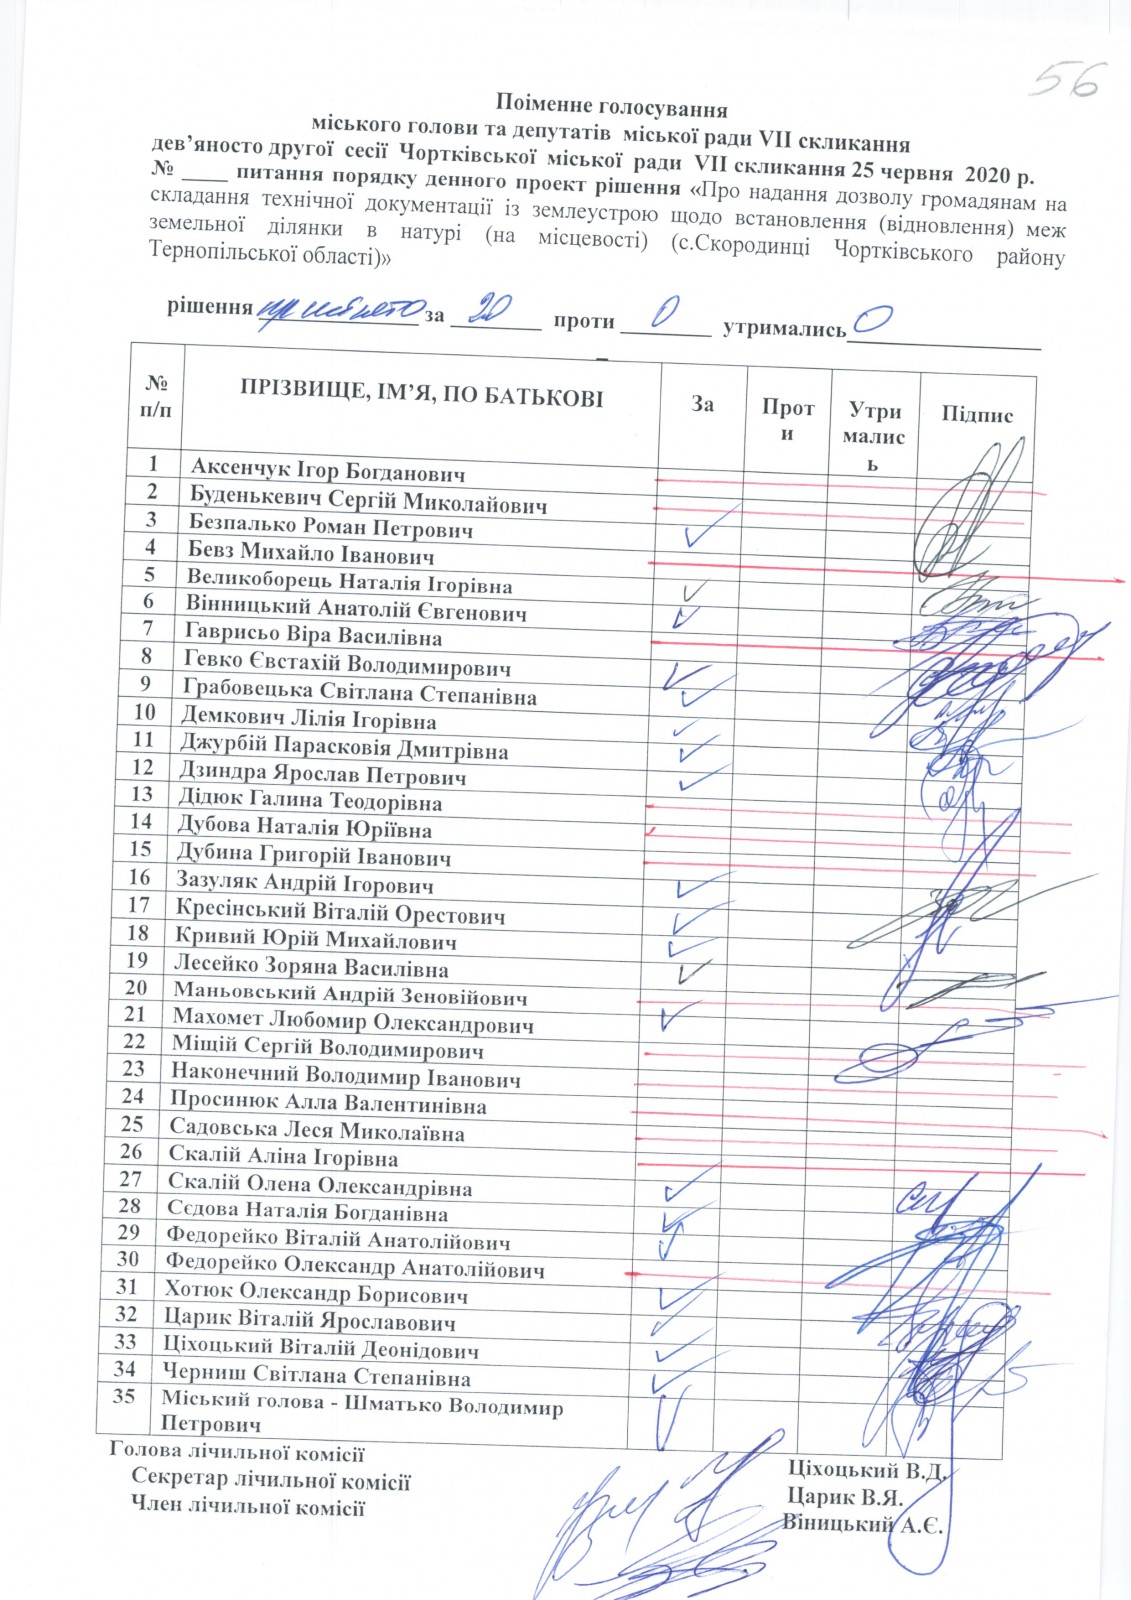 56
Поіменне голосування
міського голови та депутатів міської ради VII скликання
дев’яносто другої сесії Чортківської міської ради VII скликання 25 червня 2020 р.
№ ____ питання порядку денного проект рішення «Про надання дозволу громадянам на
складання технічної документації із землеустрою щодо встановлення (відновлення) меж
земельної ділянки в натурі (на місцевості) (с.Скородинці Чортківського району
Тернопільської області)»
рішення прийнято за 20 проти 0 утримались 0
№ п/п ПРІЗВИЩЕ, ІМ’Я, ПО БАТЬКОВІ За Проти Утрималисьь Підпис
1 Аксенчук Ігор Богданович
2 Буденькевич Сергій Миколайович
3 Безпалько Роман Петрович ✓
4 Бевз Михайло Іванович
5 Великоборець Наталія Ігорівна ✓
6 Вінницький Анатолій Євгенович ✓
7 Гаврисьо Віра Василівна
8 Гевко Євстахій Володимирович ✓
9 Грабовецька Світлана Степанівна ✓
10 Демкович Лілія Ігорівна ✓
11 Джурбій Парасковія Дмитрівна ✓
12 Дзиндра Ярослав Петрович ✓
13 Дідюк Галина Теодорівна
14 Дубова Наталія Юріївна
15 Дубина Григорій Іванович
16 Зазуляк Андрій Ігорович ✓
17 Кресінський Віталій Орестович ✓
18 Кривий Юрій Михайлович ✓
19 Лесейко Зоряна Василівна ✓
20 Маньовський Андрій Зеновійович
21 Махомет Любомир Олександрович ✓
22 Міщій Сергій Володимирович
23 Наконечний Володимир Іванович
24 Просинюк Алла Валентинівна
25 Садовська Леся Миколаївна
26 Скалій Аліна Ігорівна
27 Скалій Олена Олександрівна ✓
28 Сєдова Наталія Богданівна ✓
29 Федорейко Віталій Анатолійович ✓
30 Федорейко Олександр Анатолійович
31 Хотюк Олександр Борисович ✓
32 Царик Віталій Ярославович ✓
33 Ціхоцький Віталій Деонідович ✓
34 Черниш Світлана Степанівна ✓
35 Міський голова - Шматько Володимир
Петрович ✓
Голова лічильної комісії Ціхоцький В.Д.
Секретар лічильної комісії Царик В.Я.
Член лічильної комісії Віницький А.Є.